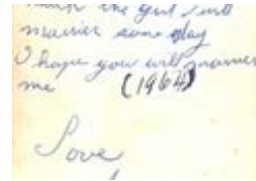 the girl I will
marrier some day
I hope you will marrier
me (1964)
Love